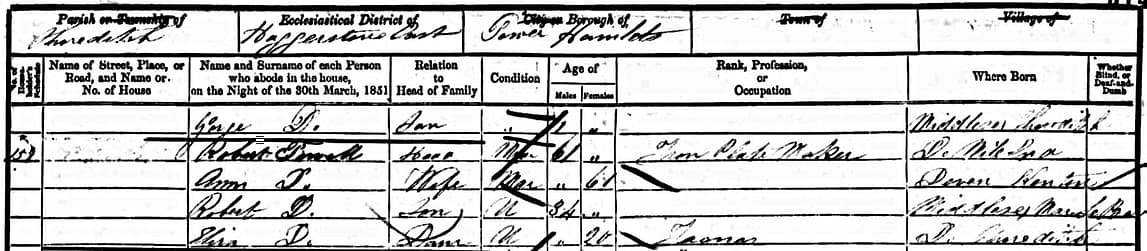 Parish or Township of Ecclesiastical District of City or Borough of Town of Village of
Shoreditch Haggerstone East Tower Hamlets
No. of House- holder's Schedule Name of Street, Place, or Road, and Name or No. of House Name and Surname of each Person who abode in the house, on the Night of the 30th March, 1851 Relation to Head of Family Condition Age of Males Females Rank, Profession, or Occupation Where Born Whether Blind, or Deaf-and-Dumb
George D. Son " " Middlesex Shoreditch
159 Robert Head Mar 61 " Iron Plate Maker Do Mile End
Ann D. Wife Mar " 61 Devon
Robert D. Son U 34 " Middlesex
Eliza D. U " 20 Do Shoreditch